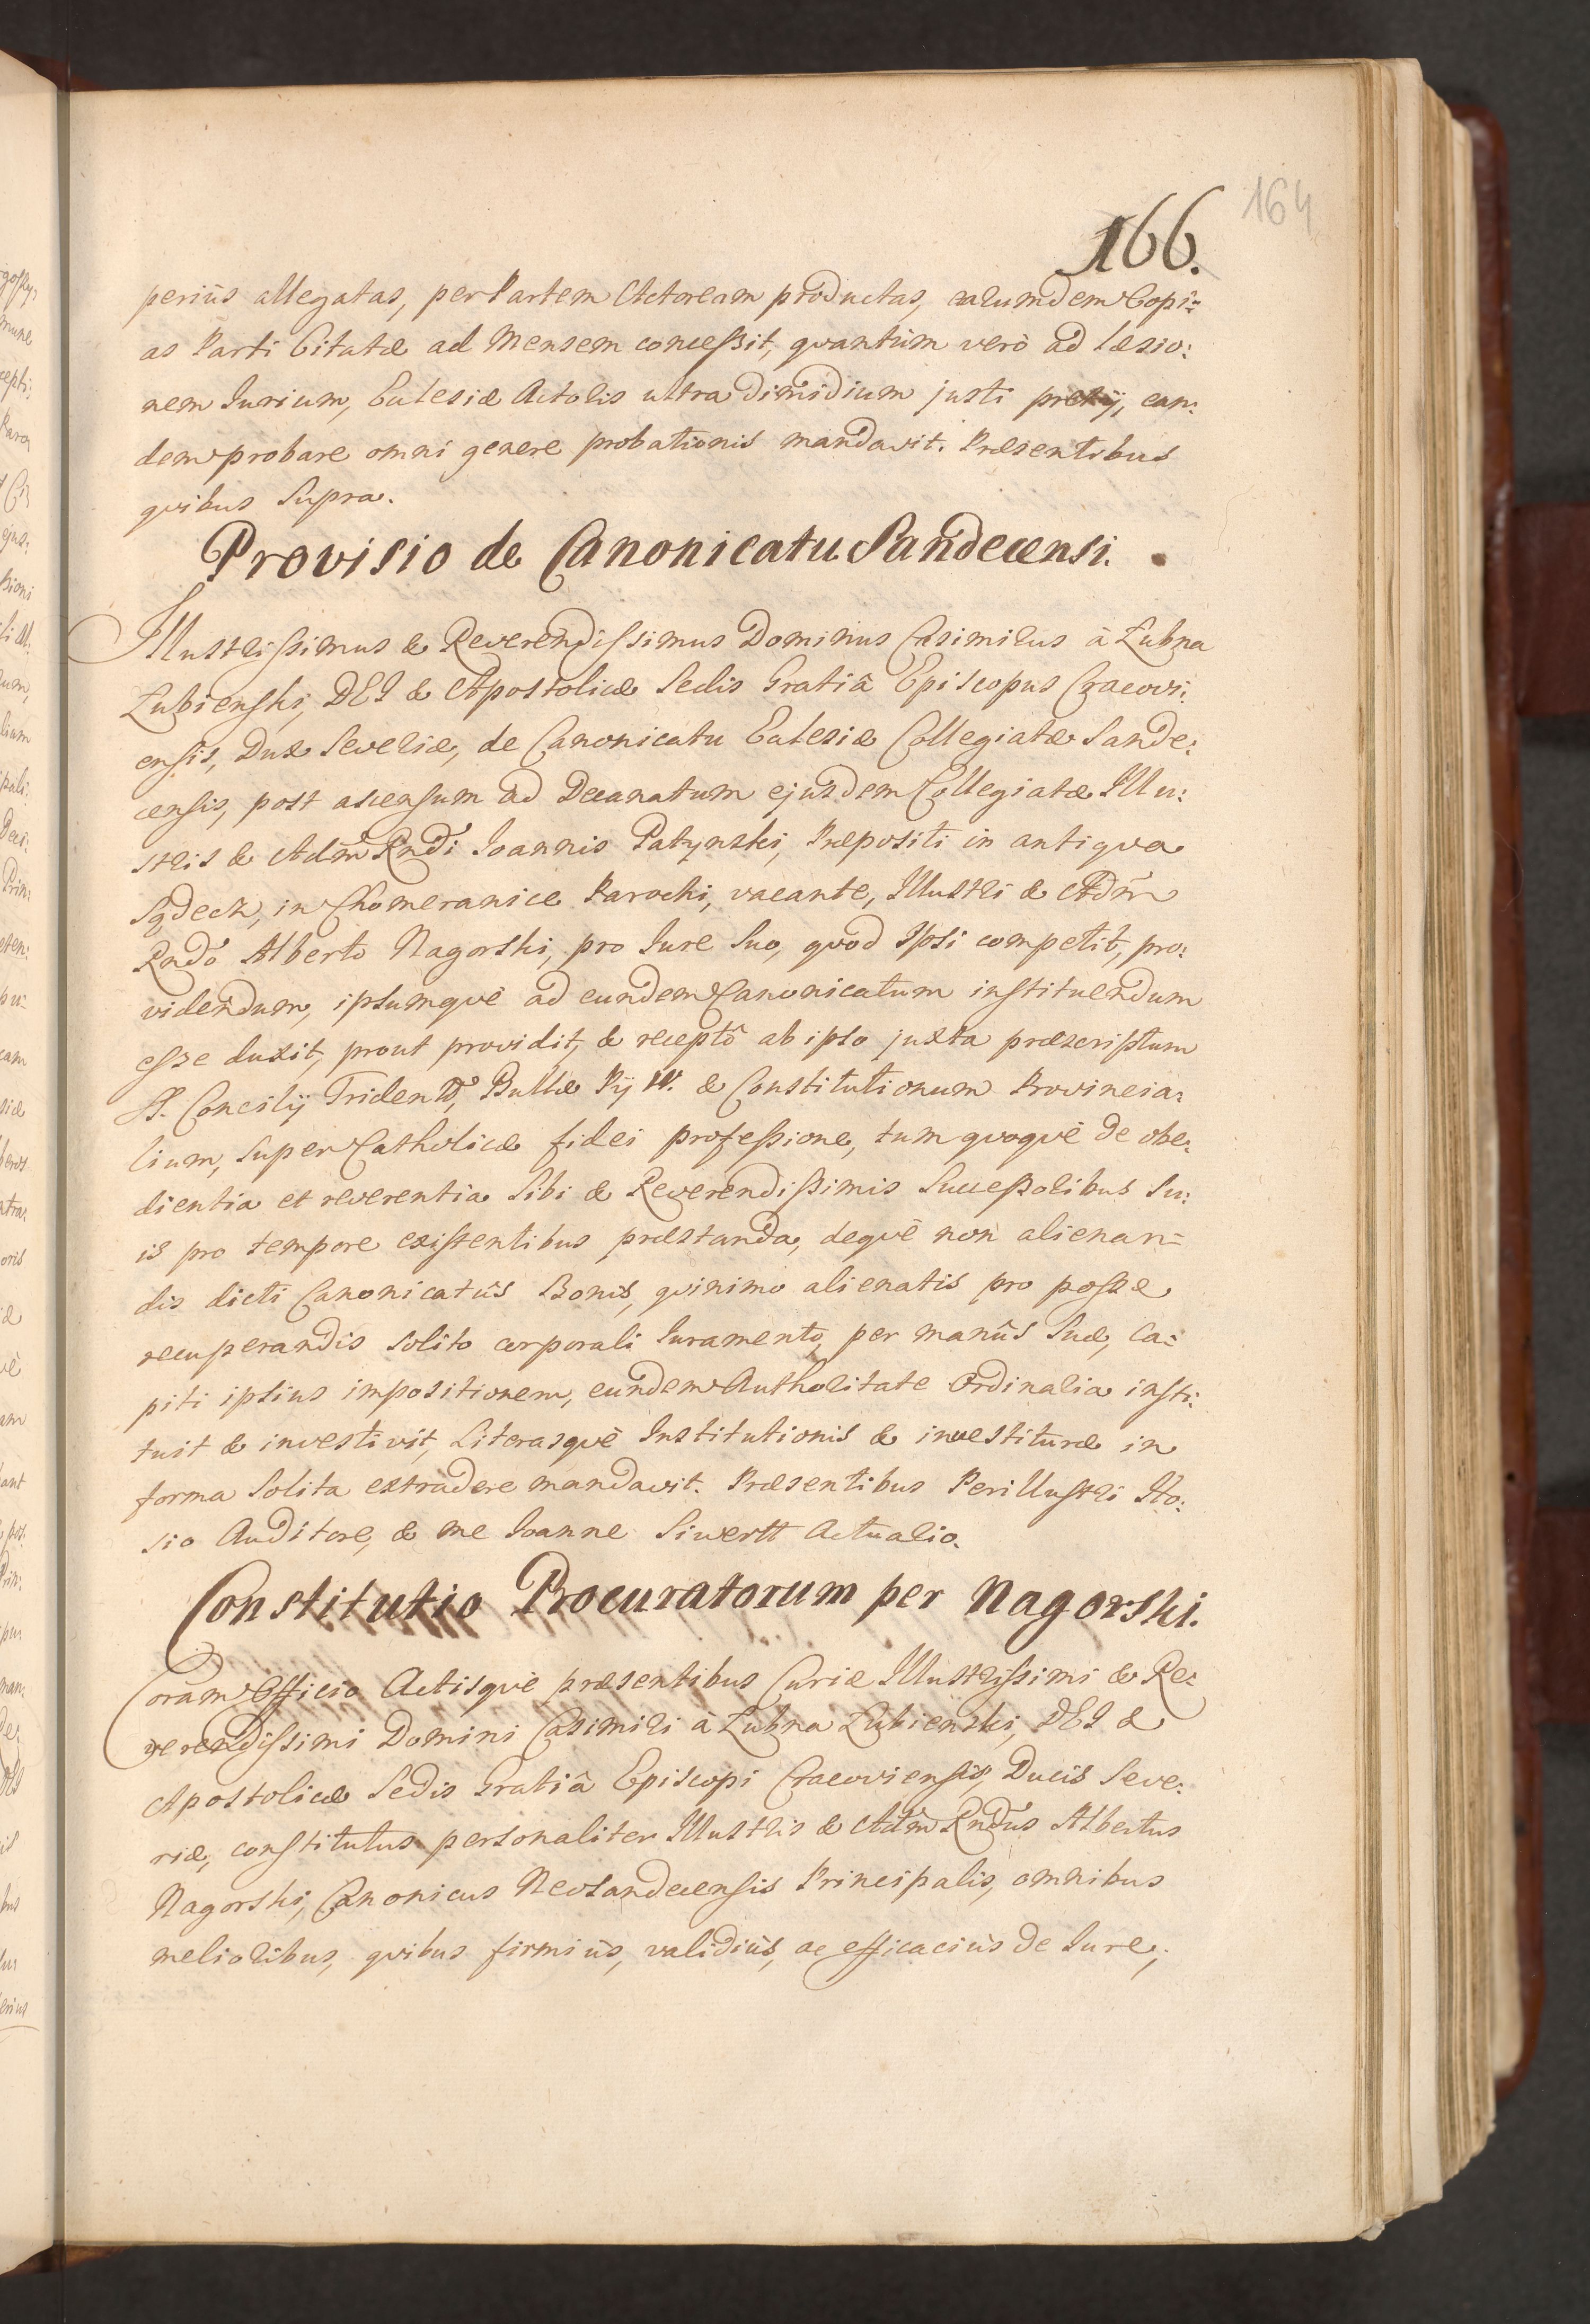 164
166.
periùs allegatas, per Partem Actoream productas, earumdem Copi:
as Parti Citatæ ad Mensem conceſsit, quantùm verò ad læsio:
nem Iurium, Ecclesiæ Actoris ultra dimidium justi pretij, ean:
dem probare omni genere probationis mandavit. Præsentibus
quibus Supra.
Provisio de Canonicatu Sandecensi.
Illustrissimus & Reverendissimus Dominus Casimirus à Łubna
Łubienski, DEI & Apostolicæ Sedis Gratiâ Episcopus Cracovi:
ensis, Dux Severiæ, de Canonicatu Ecclesiæ Collegiatæ Sande:
censis, post ascensum ad Decanatum ejusdem Collegiatæ Illu:
stris & Adm̃ Rñdi Ioannis Patynski, Præpositi in antiqua
Sądecz, in Chomeranice Parochi, vacante, Illustri & Adm̃
Rñdo Alberto Nagorski, pro Iure Suo, quod Ipsi competit, pro:
videndum, ipsumquè ad eundem Canonicatum instituendum
esse duxit, prout providit, & receptô ab ipso juxta præscriptum
S. Concilij Trident:, Bullæ Pij IV. & Constitutionum Provincia:
lium, super Catholicæ fidei profeſsione, tum quoquè de obe:
dientia et reverentia Sibi & Reverendiſsimis Succeſsoribus Su:
is pro tempore existentibus præstanda, dequè non alienan=
dis dicti Canonicatûs Bonis, quinimo alienatis pro posse
recuperandis solito corporali Iuramento, per manûs Suæ, Ca:
piti ipsius impositionem, eundem Authoritate Ordinaria insti:
tuit & investivit, Literasquè Institutionis & investituræ in
forma Solita extradere mandavit. Præsentibus Perillustri Ho:
sio Auditore, & me Ioanne Siwertt Actuario.
Constitutio Procuratorum per Nagorski.
Coram Officio Actisquè præsentibus Curiæ Illustrissimi & Re:
verendissimi Domini Casimiri à Łubna Łubienski, DEI &
Apostolicæ Sedis Gratiâ Episcopi Cracoviensis, Ducis Seve:
riæ, constitutus personaliter Illustris & Adm̃ Rñdus Albertus
Nagorski, Canonicus Neosandecensis Principalis, omnibus
melioribus, quibus firmiùs, validiùs, ac efficaciùs de Iure,